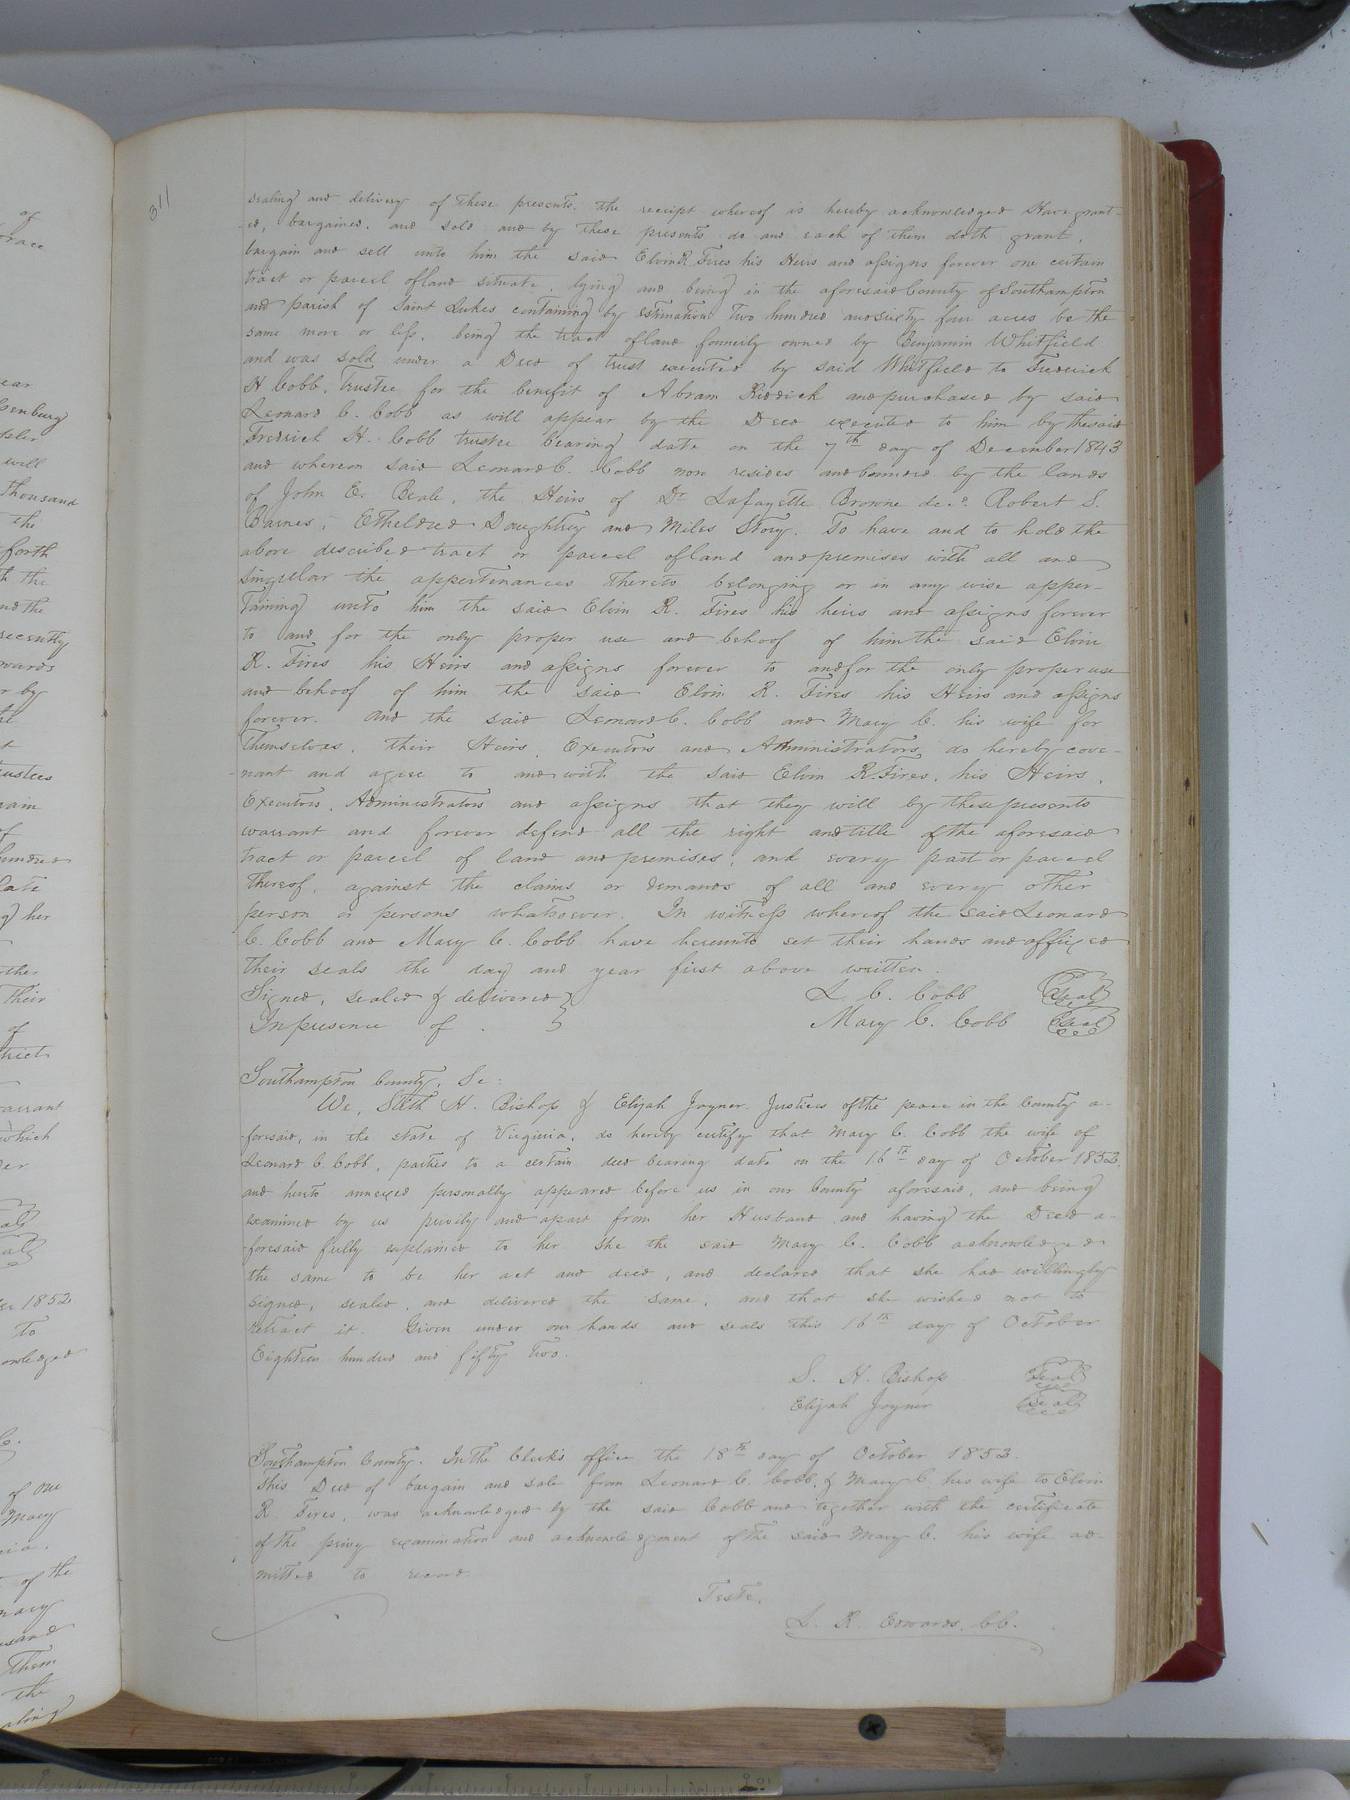 311
sealing and delivery of these presents. the receipt whereof is hereby acknowledged Have grant-
ed, bargained, and sold and by these presents do and each of them doth grant,
bargain and sell unto him the said Elvin R. Fires his Heirs and assigns forever one certain
tract or parcel of land situate, lying and being in the aforesaid County of Southampton
and parish of Saint Lukes containing by estimation Two hundred and sixty four acres be the
same more or less, being the tract of land formerly owned by Benjamin Whitfield
and was sold under a Deed of trust executed by said Whitfield to Frederick
H Cobb, Trustee for the benefit of Abram Riddick and purchased by said
Leonard C. Cobb as will appear by the Deed executed to him by the said
Fredrick H. Cobb trustee bearing date on the 7th day of December 1843
and whereon said Leonard C. Cobb now resides and bounded by the lands
of John E. Beale, the Heirs of Dr Lafayette Browne decd. Robert S.
Barnes, Etheldred Daughtrey and Miles Story. To have and to hold the
above described tract or parcel of land and premises with all and
singular the appertenances thereto belonging or in any wise apper-
taining unto him the said Elvin R. Fires his heirs and assigns forever
to and for the only proper use and behoof of him the said Elvin
R. Fires his Heirs and assigns forever to and for the only proper use
and behoof of him the said Elvin R. Fires his Heirs and assigns
forever. And the said Leonard C. Cobb and Mary C. his wife for
themselves, their Heirs, Executors and Administrators, do hereby cove-
nant and agree to and with the said Elvin R. Fires, his Heirs,
Executors, Administrators and assigns that they will by these presents
warrant and forever defend all the right and title of the aforesaid
tract or parcel of land and premises, and every part or parcel
thereof, against the claims or demands of all and every other
person or persons whatsoever. In witness whereof the said Leonard
C. Cobb and Mary C. Cobb have hereunto set their hands and affixed
their seals the day and year first above written.
Signed, sealed & delivered } L C. Cobb Seal
In presence of . } Mary C. Cobb Seal
Southampton County, Sc:
We, Stith H. Bishop & Elijah Joyner Justices of the peace in the County a-
foresaid, in the state of Virginia, do hereby certify that Mary C. Cobb the wife of
Leonard C. Cobb, parties to a certain deed bearing date on the 16th day of October 1852
and hereto annexed personally appeared before us in our County aforesaid, and being
examined by us privily and apart from her Husband and having the Deed a-
foresaid fully explained to her She the said Mary C. Cobb acknowledged
the same to be her act and deed, and declared that she had willingly
signed, sealed, and delivered the same, and that she wished not to
retract it. Given under our hands and seals this 16th day of October
Eighteen hundred and fifty two.
S. H. Bishop Seal
Elijah Joyner Seal
Southampton County. In the Clerk's office the 18th day of October 1852.
This Deed of bargain and sale from Leonard C. Cobb, & Mary C. his wife to Elvin
R. Fires, was acknowledged by the said Cobb and together with the certificate
of the privy examination and acknowledgment of the said Mary C. his wife ad-
mitted to record.
Teste,
L. R. Edwards, CC.